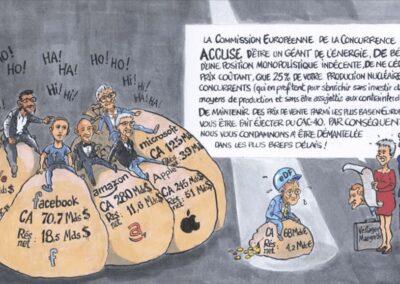 HO! HO!
HA! HA!
HO! HO!
HA! HA!
HO!
HI! HI!
HA! HA!
LA COMMISSION EUROPÉENNE DE LA CONCURRENCE
ACCUSE D'ÊTRE UN GÉANT DE L'ÉNERGIE, DE BÉ
D'UNE POSITION MONOPOLISTIQUE INDÉCENTE, DE NE CÉD
PRIX COÛTANT, QUE 25% DE VOTRE PRODUCTION NUCLÉAIRE
CONCURRENTS (qui en profitent pour s'enrichir sans investir d
moyens de production et sans être assujettis aux contraintes d
DE MAINTENIR DES PRIX DE VENTE PARMI LES PLUS BAS EN EUROPE
VOUS ÊTRE FAIT ÉJECTER DU CAC-40. PAR CONSÉQUENT
NOUS VOUS CONDAMNONS À ÊTRE DÉMANTELÉE
DANS LES PLUS BREFS DÉLAIS!
facebook
CA 70.7 Mds $
Rés net: 18.5 Mds $
f
amazon
CA 280 Mds $
Rés net: 11.6 Mds $
a
microsoft
CA 125 Md
39 M
Apple
CA 245 Mds $
Rés net 51 Mds
EDF
CA 68 Md €
Rés net 4.2 Md €